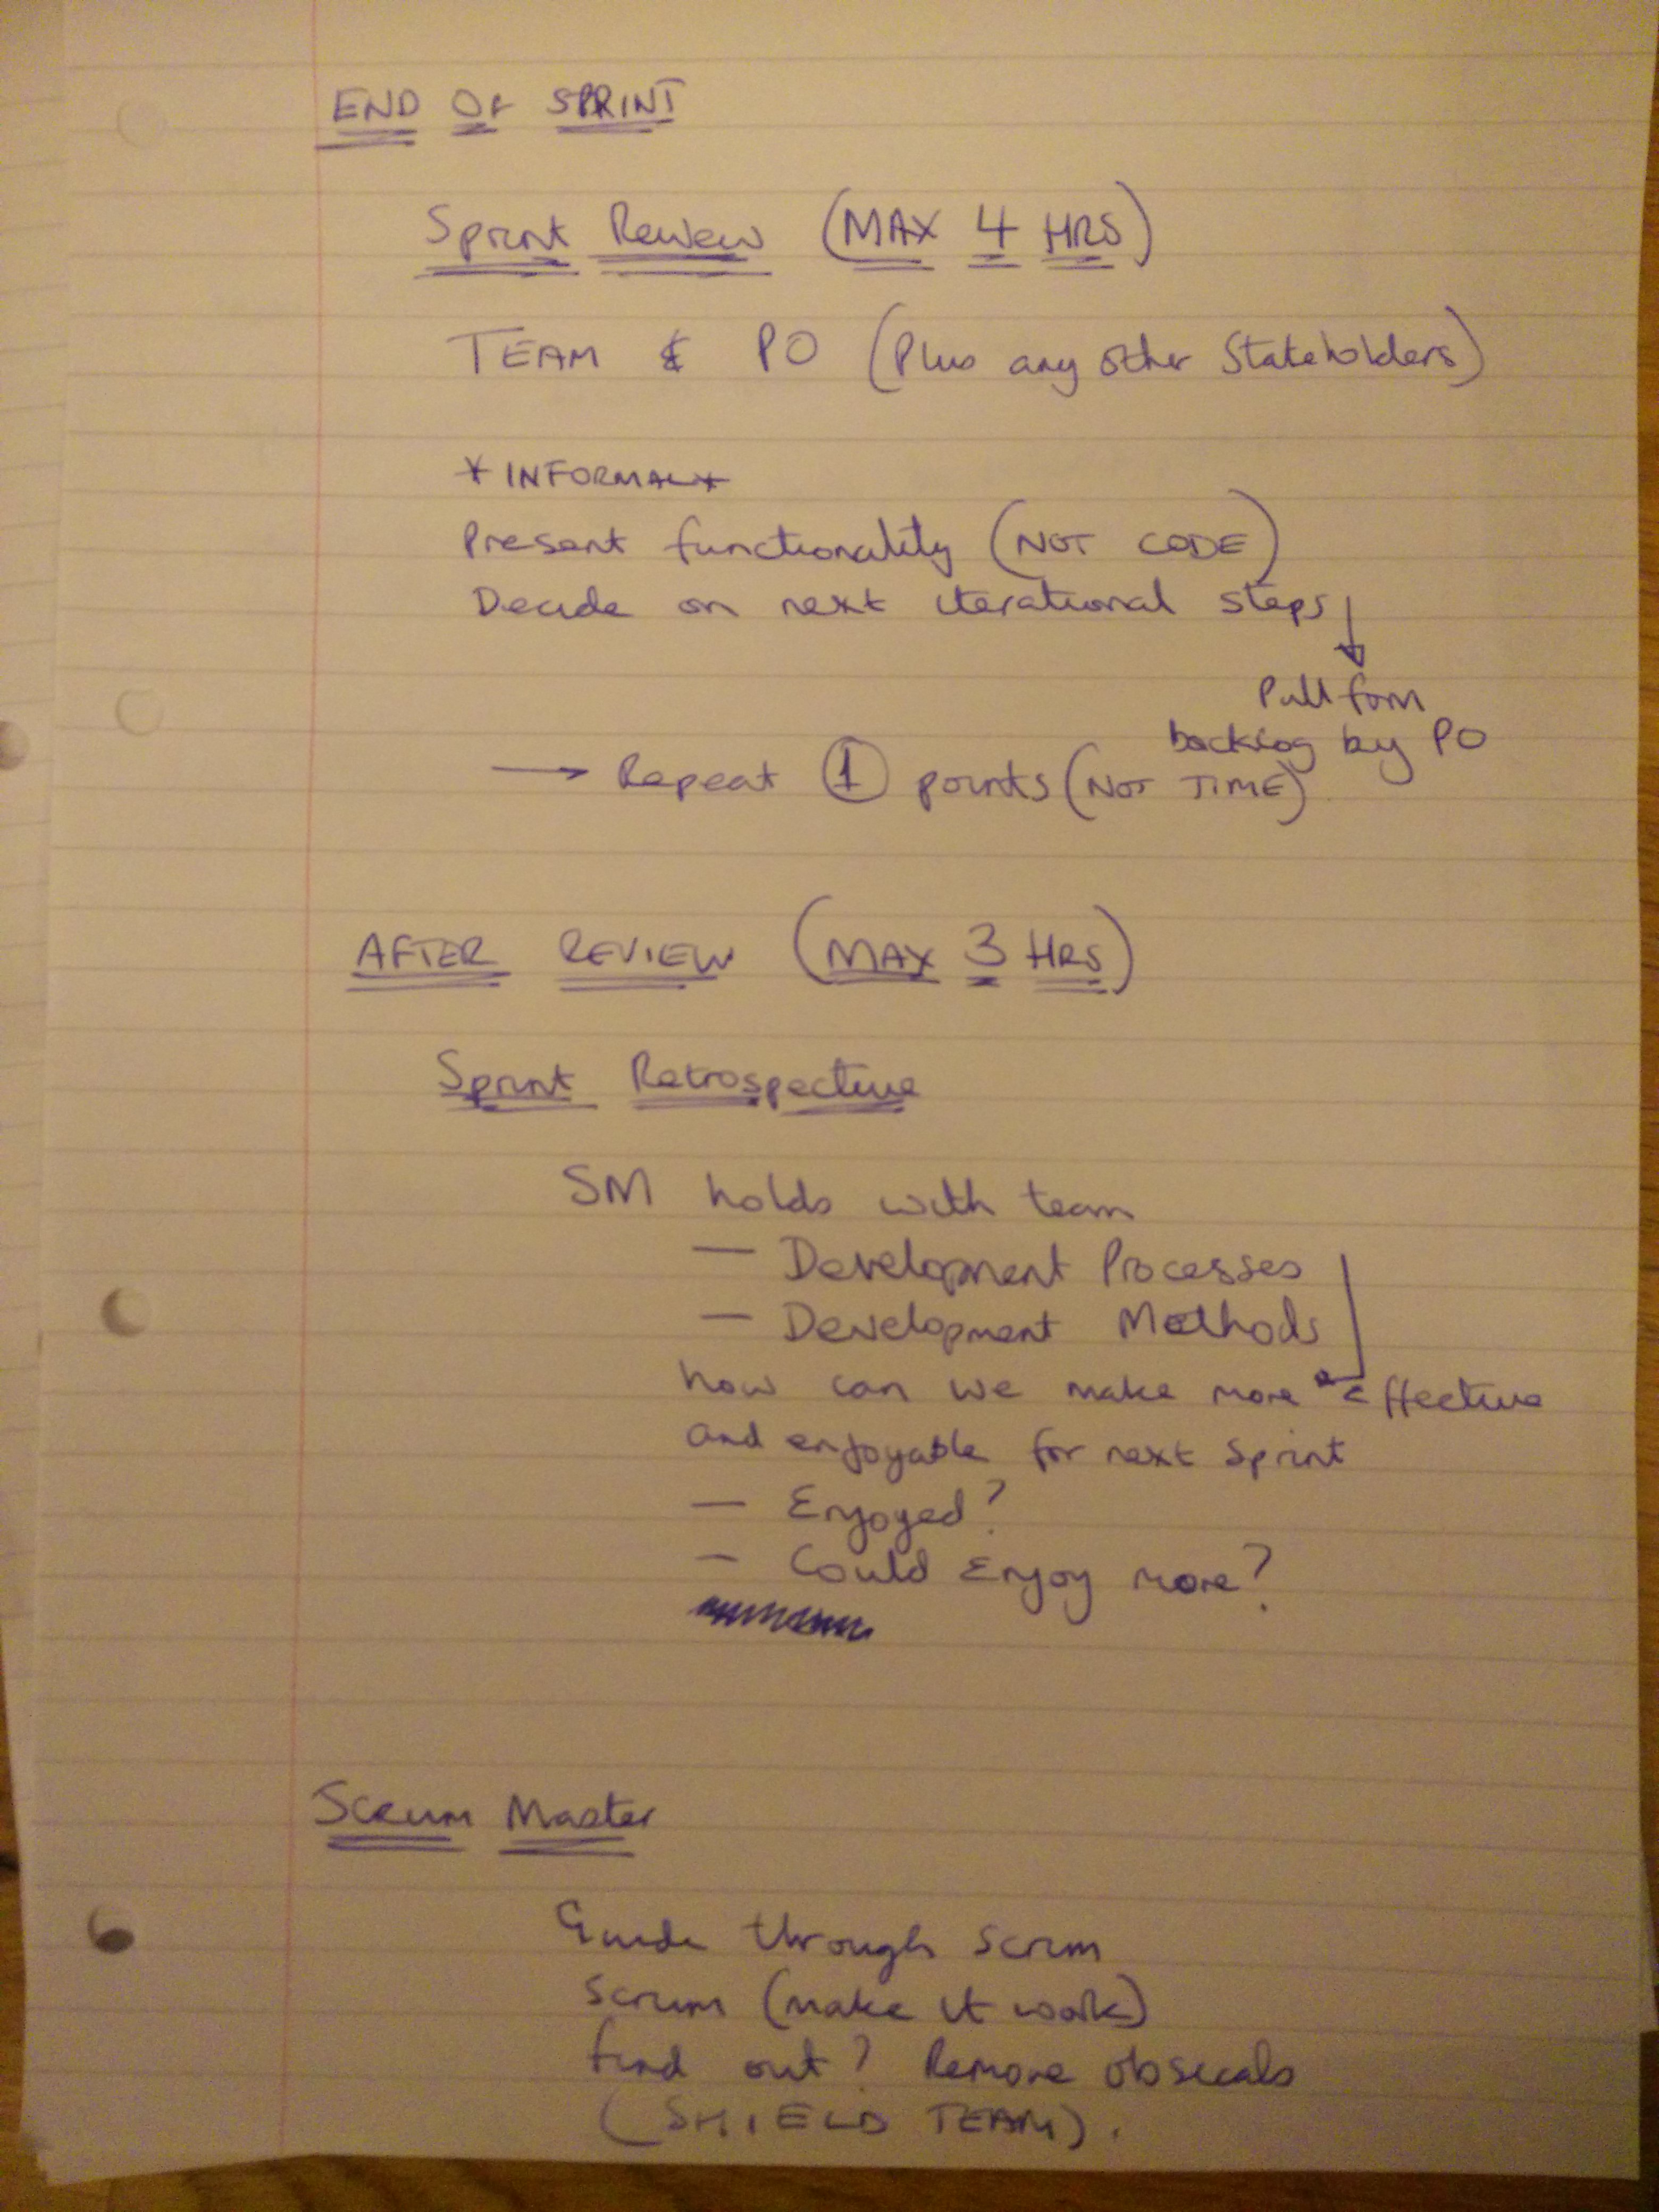 END OF SPRINT
Sprint Review (MAX 4 HRS)
TEAM & PO (Plus any other Stakeholders)
* INFORMAL *
Present functionality (NOT CODE)
Decide on next iterational steps
Pull form
backlog by PO
→ Repeat ① points (NOT TIME)
AFTER REVIEW (MAX 3 HRS)
Sprint Retrospective
SM holds with team
— Development Processes
— Development Methods
how can we make more effective
and enjoyable for next sprint
— Enjoyed?
— Could Enjoy more?
Scrum Master
Guide through scrum
scrum (make it work)
find out? Remove obsecals
(SHIELD TEAM).